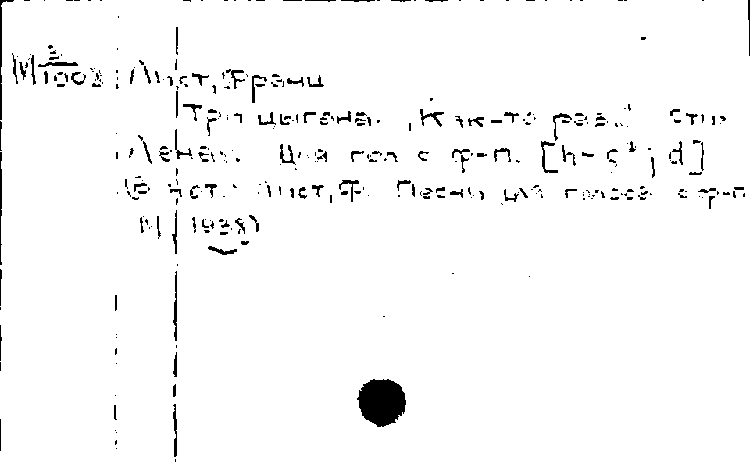 М 3/1003 Лист, Франц
Три цыгана. "Как-то раз.." стих
Ленау. Для гол с ф-п. [h-g²; d]
(В нот.: Лист, Ф. Песни для голоса с ф-п
М., 1938)